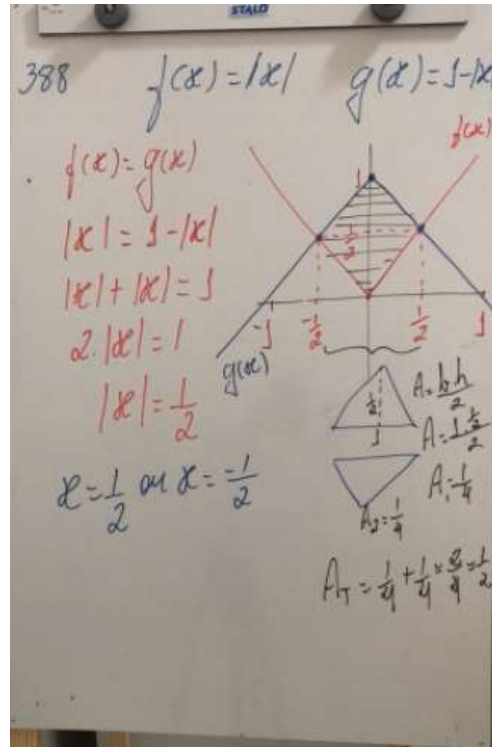 STALO
388 f(x)=|x| g(x)=1-|x
f(x)=g(x)
|x|=1-|x|
|x|+|x|=1
2.|x|=1
|x|=1/2
x=1/2 ou x=-1/2
f(x)
1
1/2
-1 -1/2 1/2 1
g(x)
1/2
1
A=b.h/2
A=1.1/2/2
A₁=1/4
A₂=1/4
A_T=1/4+1/4=2/4=1/2